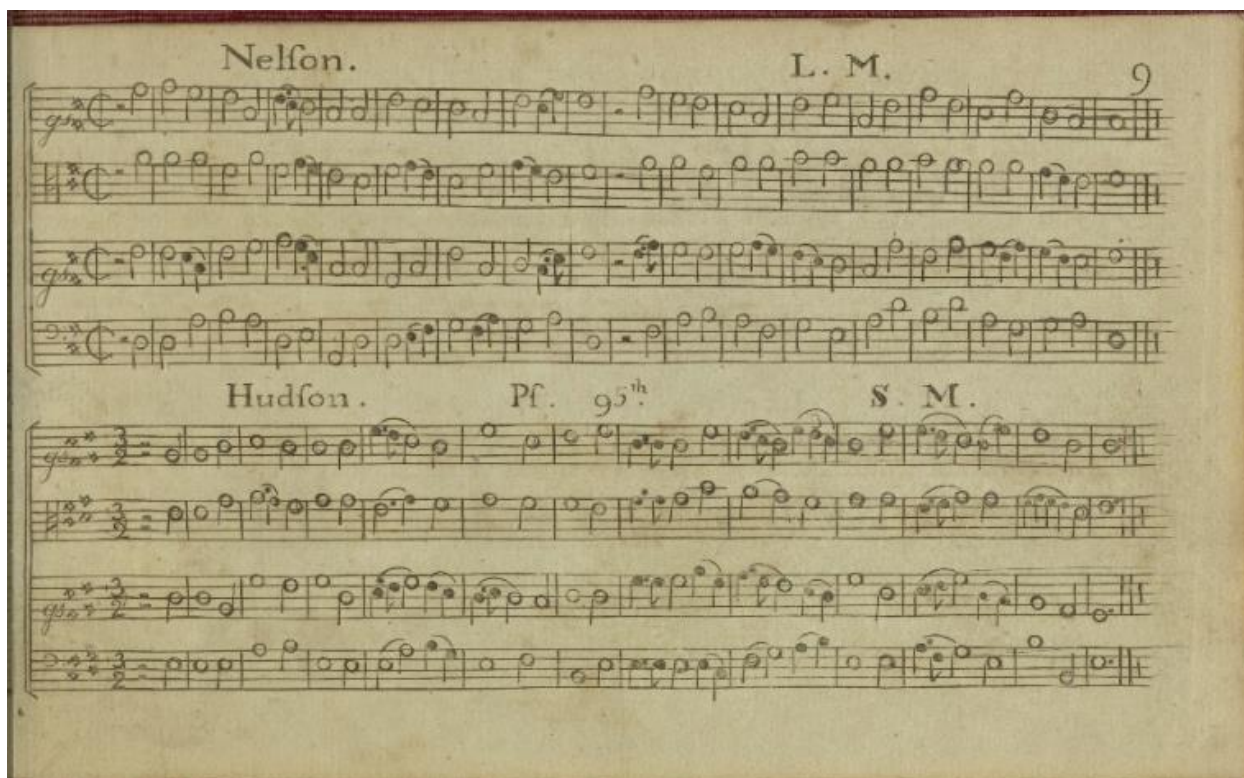 Nelſon. L. M. 9
Hudſon. Pſ. 95th. S. M.